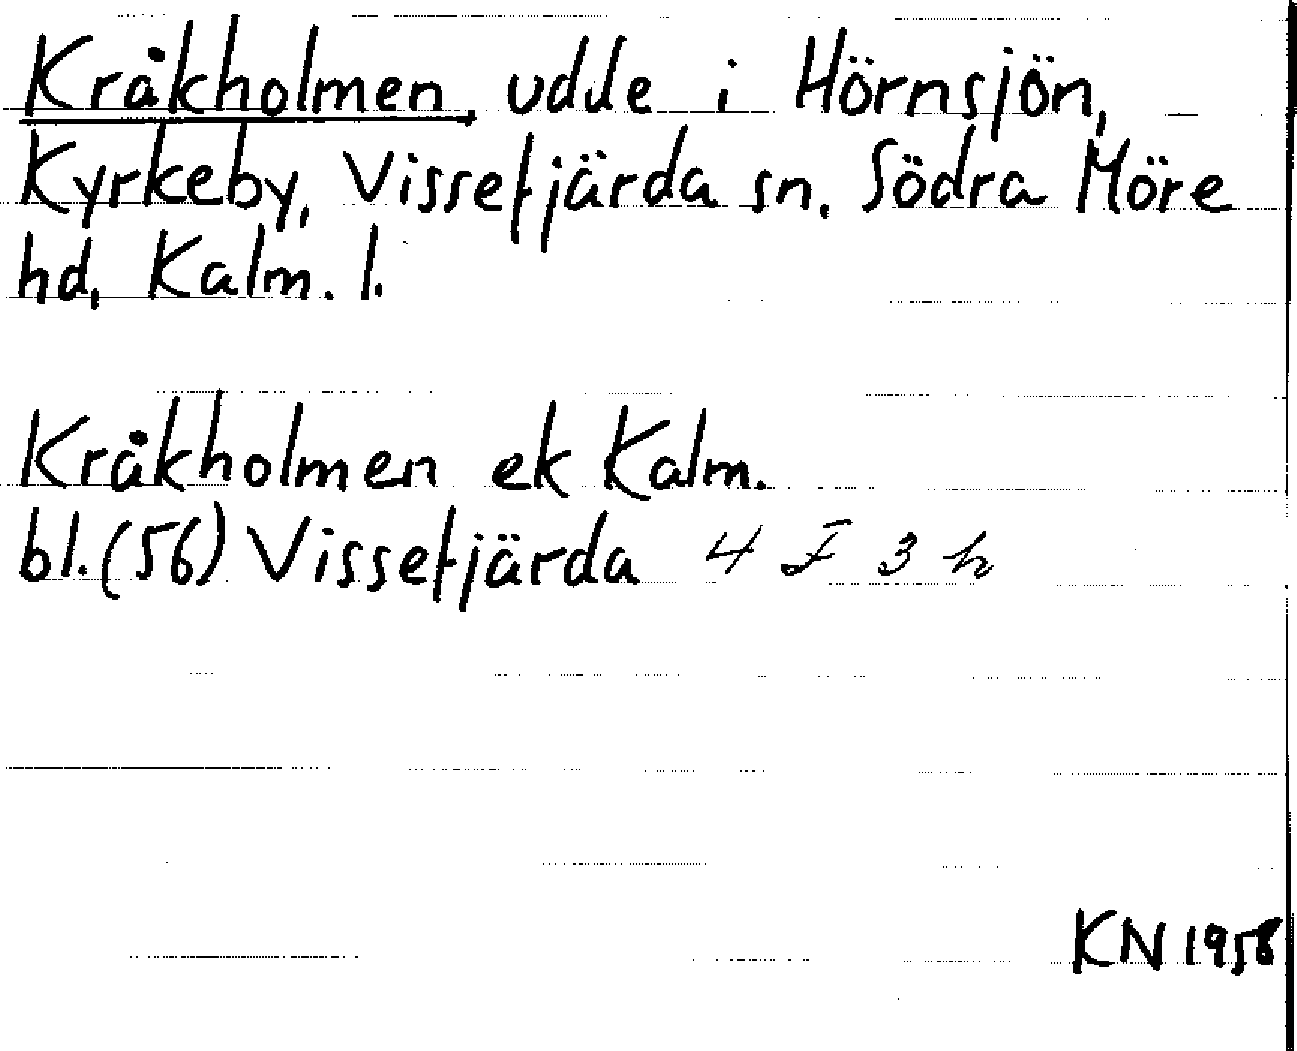 Kråkholmen, udde i Hörnsjön,
Kyrkeby, Vissefjärda sn. Södra Möre
hd, Kalm. l.
Kråkholmen ek Kalm.
bl. (56) Vissefjärda 4 F 3 h
KN 1958